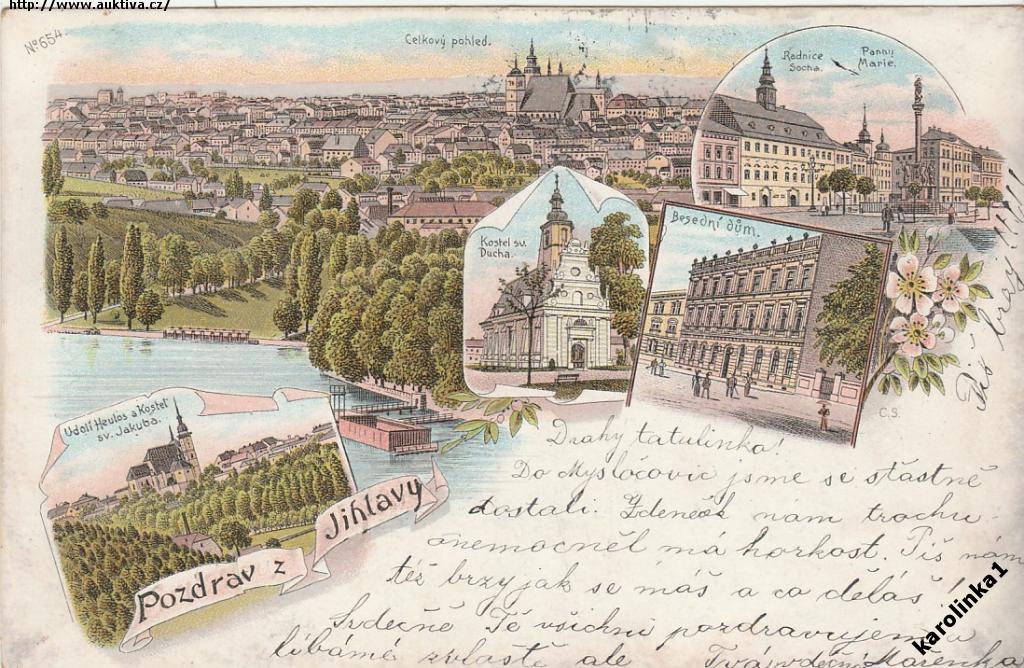 http://www.auktiva.cz/
No 654
Celkový pohled.
Radnice
Socha.
Panny
Marie.
Kostel sv.
Ducha.
Besední dům.
Udolí Heulos a Kostel
sv. Jakuba.
C.S.
Pozdrav z
Jihlavy
Piš brzy!!!
Drahy tatulinka!
Do Mysločovic jsme se šťastně
dostali. Zdeněček nam trochu
onemocněl má horkost. Piš nám
též brzy jak se máš a co děláš!
Srdečně Tě všichni pozdravujem a
líbámé zvlaště ale Tvá vděčná Mařenka
karolinka1